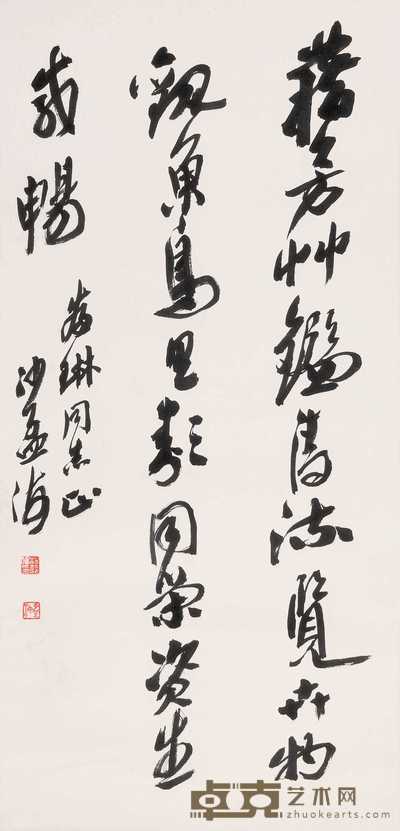 藉芳艸鑑清流覽卉物
觀魚鳥具類同榮資生
咸暢
琳同志正
沙孟海
卓克艺术网
zhuokearts.com